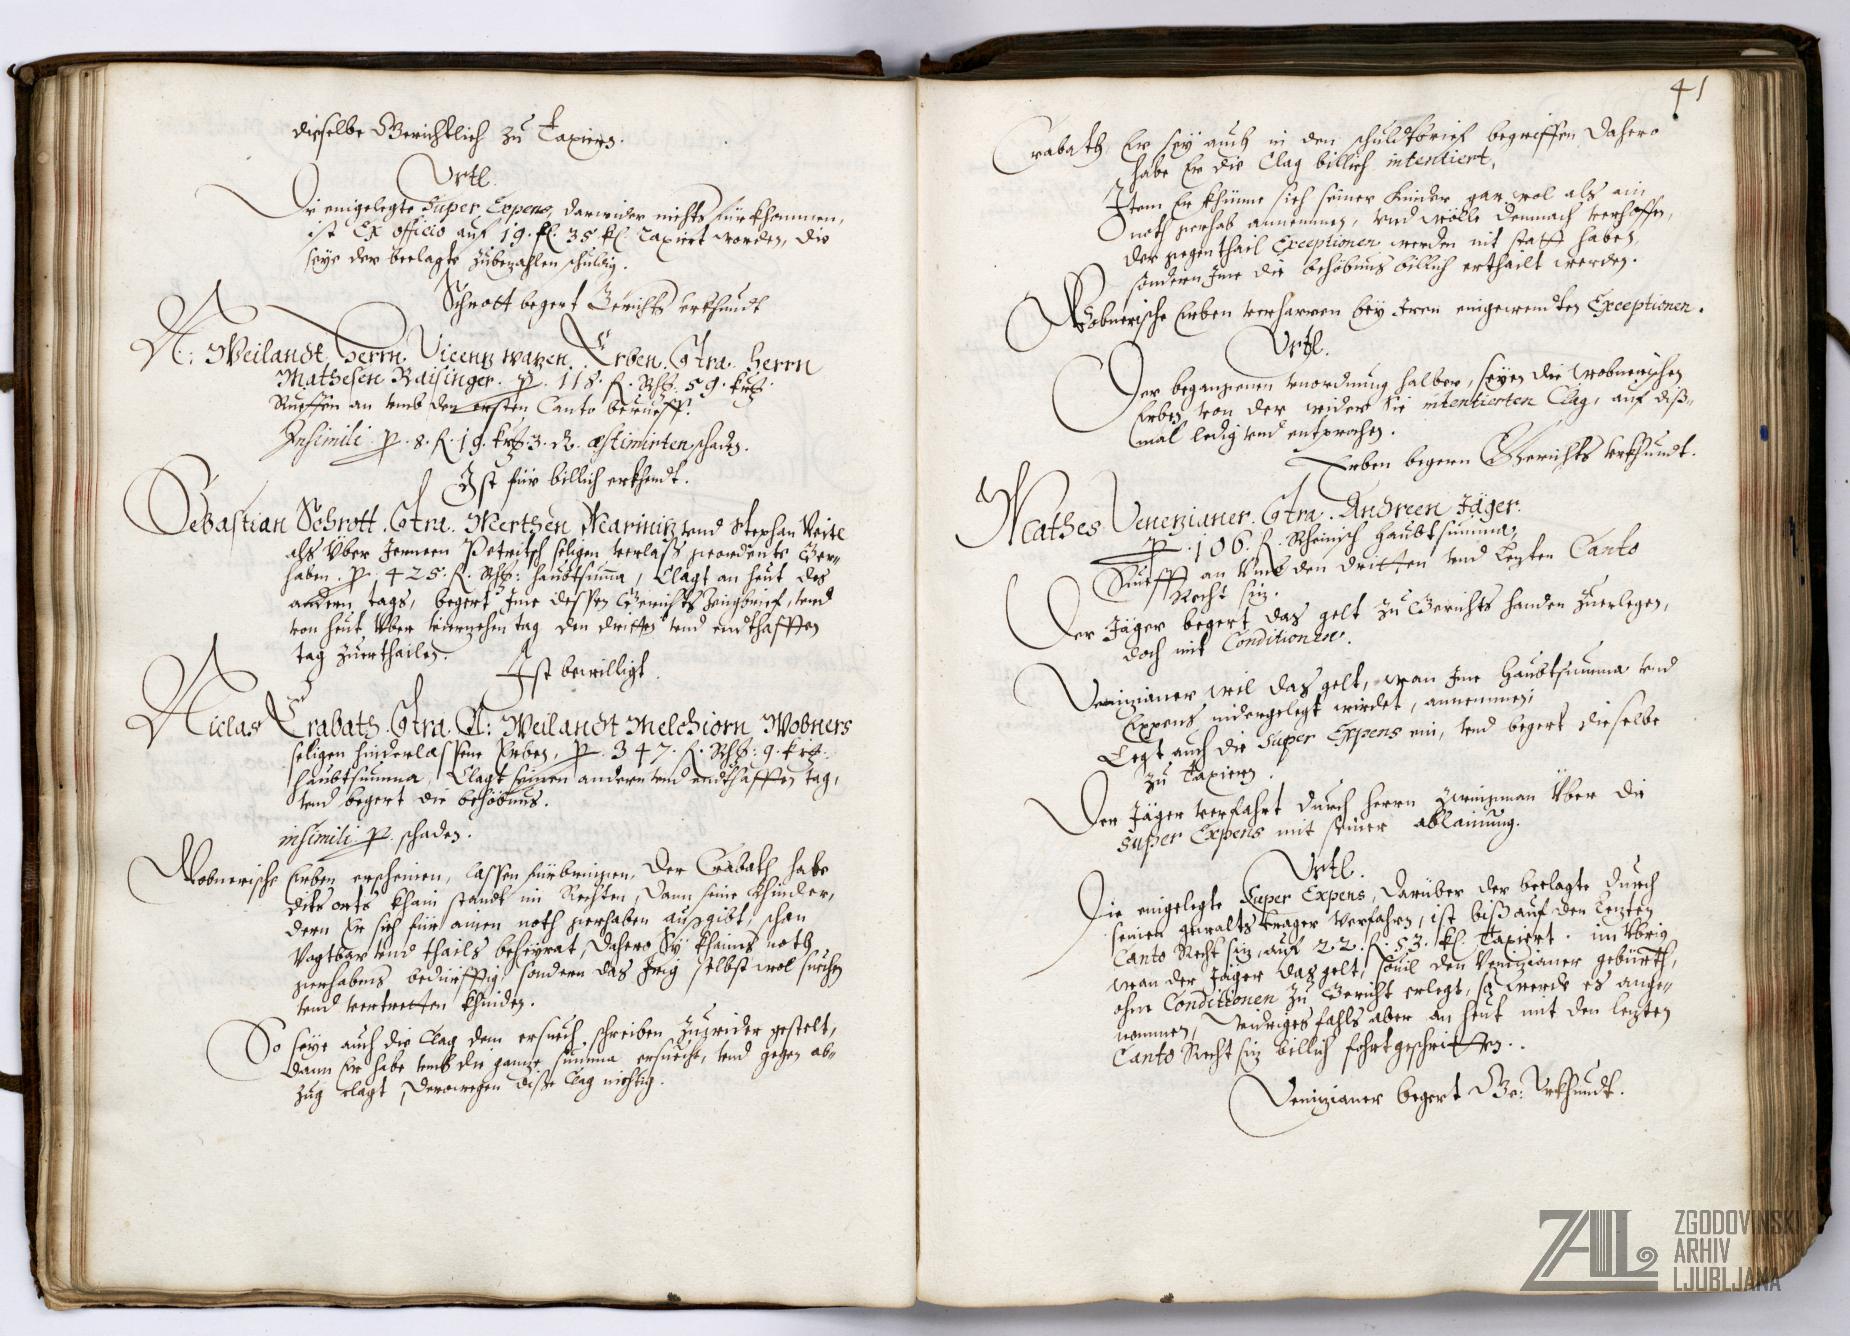 dieselbe Gerichtlich zu Taxiern.
Vrtl.
Die eingelegte Super Expens, darwider nichts fürkhommen,
ist Ex officio auf 19. fl. 35 kl. Taxiert worden, die
seye der beclagte zubezahlen schuldig.
Schrott begert Gerichts Urkhundt
N: Weilandt Herrn Vicenz Erben. Ctra. Herrn
Mathesen Raisinger. p. 118. fl. Rhs. 59. krz.
Rueffen an vmb den ersten Canto berueff.
Insimili. p. 8. fl. 19. krz. 3. d. æstimirten schaden.
Ist für billich erkhendt.
Sebastian Schrott. Ctra. Merthen Marinitz vnd Stephan Veitl
als Über Jerneen Petritsch seligen verlass geordente Ger-
haben. p. 425. fl. Rhs: haubtsuma, Clagt an heut des
andern tags, begert Ime dessen Gerichts Zeugbrief, vnd
von heut Über vierzehen tag den dritten vnd endthafften
tag zuerthailen.
Ist bewilligt.
Niclas Crabath. Ctra. N: Weilandt Melchiorn Wobners
seligen hinderlassene Erben, p. 347. fl. Rhs: 9. krz.
haubtsumma, Clagt seinen andern vnd endthafften tag,
vnd begert die behöbnus.
insimili. p. schaden.
Wobnerische Erben erscheinen, lassen fürbringen, Der Crabath habe
diss orts khain standt im Rechten, dann seine Khinder,
dern Er sich für ainen noth gerhaben aussgibt, schon
Vogtbar vnd thails beheyrat, Dahero Sy khaines noth
gerhabens bedürfftig, sondern das Irig selbst wol suechen
vnd vertretten khinden.
So seye auch die Clag dem ersuech schreiben zuwider gestelt,
dann Er habe vmb die ganze summa ersuecht, vnd gegen ab-
zug clagt, Derowegen dise Clag nichtig.
41
Crabath, Er sey auch in den schuldtbrief begriffen, Dahero
habe Er die Clag billich intentiert,
Item Er khünne sich seiner Kinder gar wol als ain
noth gerhab annemmen, vnd wölle demnach verhoffen,
der gegenthail Exceptionen werden nit statt haben,
sondern Ime die behöbnus billich erthailt werden.
Wobnerische Erben verharren bey Iren eingewendten Exceptionen.
Vrtl.
Der begangenen vnordnung halber, seyen die Wobnerischen
Erben von der wider Sie intentierten Clag, auf diss-
mal ledig vnd entprochen.
Erben begern Gerichts Vrkhundt.
Mathes Venezianer. Ctra. Andreen Jäger.
p. 106. fl. Rheinisch haubtsumma,
Rueff an Vmb den dritten vnd Lezten Canto
Recht siz.
Der Jäger begert das gelt zu Gerichts handen zuerlegen,
doch mit Conditionen.
Venezianer wil das gelt, wan Ime Haubtsumma vnd
Expens nidergelegt wirdet, annemmen;
Legt auch die Super Expens ein, vnd begert dieselbe
zu Taxiern.
Der Jäger verfahrt durch Herrn Über die
Super Expens mit seiner ablainung.
Vrtl.
Die eingelegte Super Expens, Darüber der beclagte durch
seinen gwaltstrager Verfahrn, ist biss auf den Lezten
Canto Recht siz, auf 22. fl. 53. kl. Taxiert. im Übrig
wan der Jäger das gelt, souil den Venezianer gebürth,
ohne Conditionen zu Gericht erlegt, so werde es ange-
nommen, Widriges fahls aber an heut mit den lezten
Canto Recht siz billich fohrtgeschritten.
Venezianer begert Ge: Vrkhundt.
ZAL
ZGODOVINSKI
ARHIV
LJUBLJANA